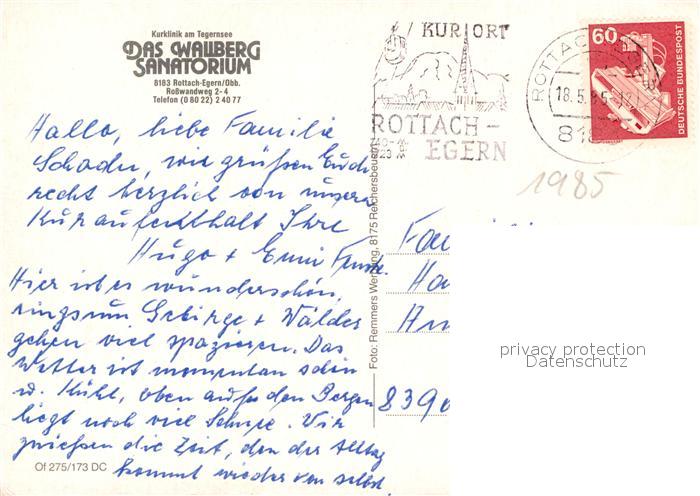 Kurklinik am Tegernsee
DAS WALLBERG
SANATORIUM
8183 Rottach-Egern/Obb.
Roßwandweg 2-4
Telefon (0 80 22) 2 40 77
Hallo, liebe Familie
Schadu, wir grüßen Euch
recht herzlich von unserm
Kuraufenthalt Ihre
Hugo + Emmi
Hier ist es wunderschön,
ringsum Gebirge + Wälder
gehen viel spazieren. Das
Wetter ist momentan schön
u. kühl, oben auf den Bergen
liegt noch viel Schnee. Wir
genießen die Zeit, denn der Alltag
kommt wieder von selbst.
Of 275/173 DC
Foto: Remmers Werbung, 8175 Reichersbeuern
KURORT
ROTTACH-
EGERN
ROTTACH
18.5.85
818
60
DEUTSCHE BUNDESPOST
1985
Fa
Ha
8390
privacy protection
Datenschutz